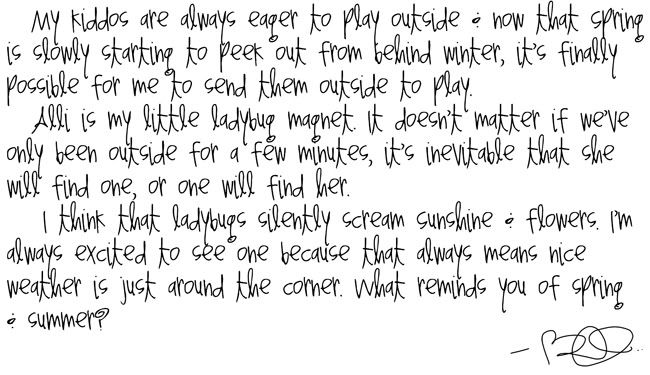 My kiddos are always eager to play outside & now that spring
is slowly starting to peek out from behind winter, it's finally
possible for me to send them outside to play.
Alli is my little ladybug magnet. It doesn't matter if we've
only been outside for a few minutes, it's inevitable that she
will find one, or one will find her.
I think that ladybugs silently scream sunshine & flowers. I'm
always excited to see one because that always means nice
weather is just around the corner. What reminds you of spring
& summer?